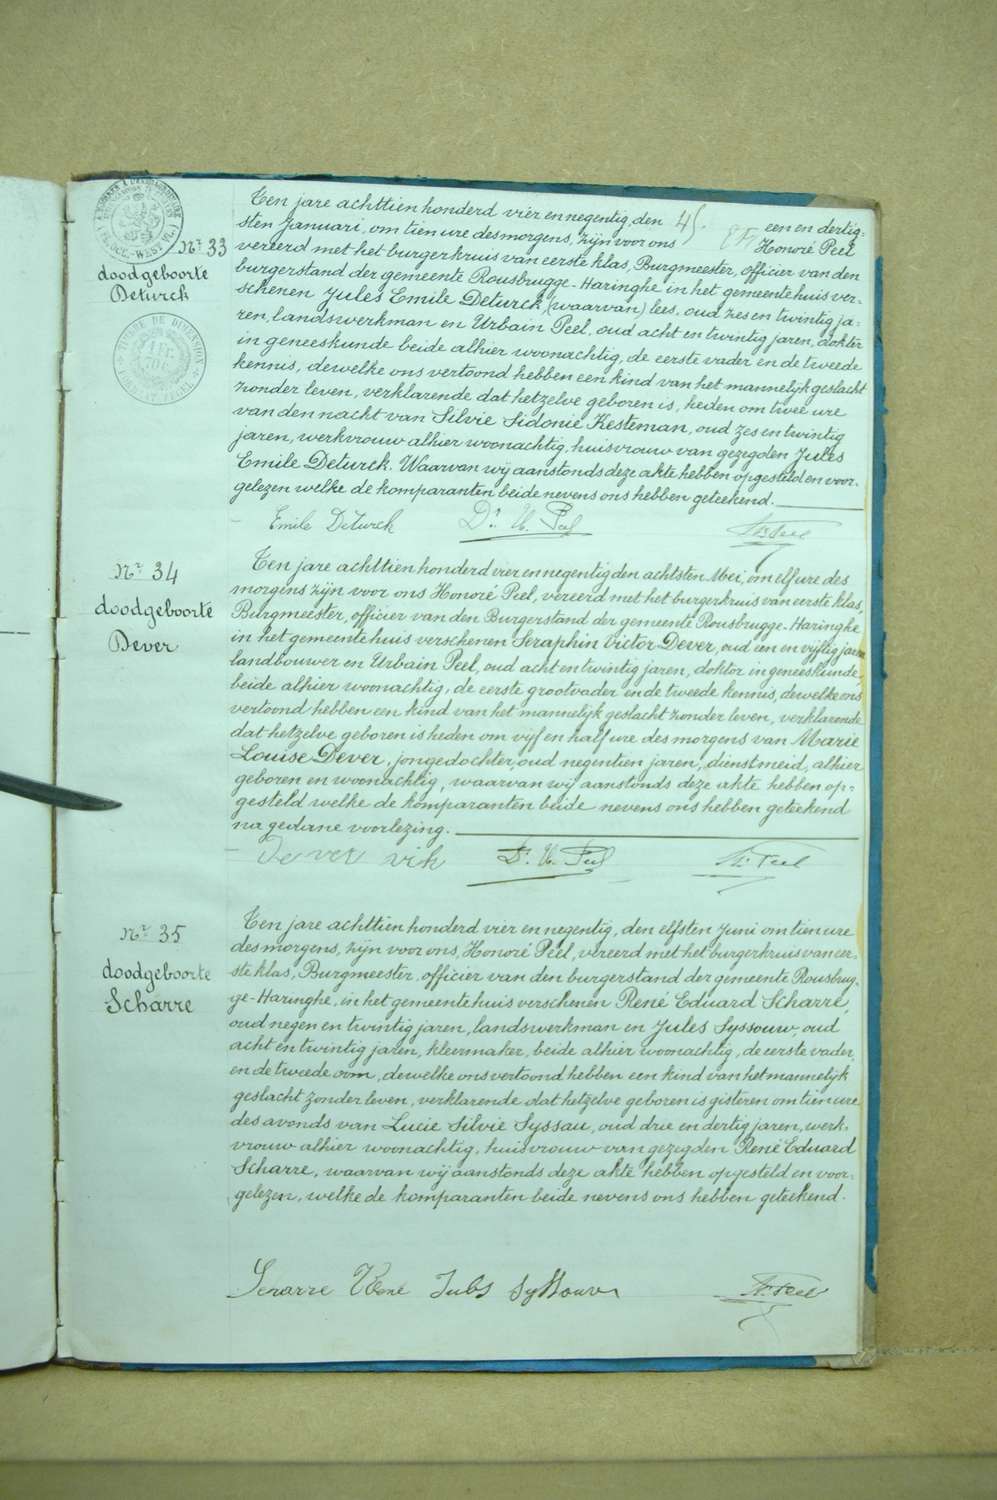 Nr. 33
doodgeboorte
Deturck
Ten jare achttien honderd vier en negentig, den 45. een en dertig-
sten Januari, om tien ure des morgens, zijn voor ons Honoré Peel
vereerd met het burgerkruis van eerste klas, Burgmeester, officier van den
burgerstand der gemeente Rousbrugge-Haringhe in het gemeentehuis ver-
schenen Jules Emile Deturck, (waarvan) lees, oud zes en twintig ja-
ren, landswerkman en Urbain Peel, oud acht en twintig jaren, dokter
in geneeskunde beide alhier woonachtig, de eerste vader en de tweede
kennis, dewelke ons vertoond hebben een kind van het mannelijk geslacht
zonder leven, verklarende dat hetzelve geboren is, heden om twee ure
van den nacht van Silvie Sidonie Kesteman, oud zes en twintig
jaren, werkvrouw alhier woonachtig, huisvrouw van gezegden Jules
Emile Deturck. Waarvan wij aanstonds deze akte hebben opgesteld en voor-
gelezen welke de komparanten beide nevens ons hebben geteekend.
Emile Deturck Dr. U. Peel H. Peel
Nr. 34
doodgeboorte
Dever
Ten jare achttien honderd vier en negentig den achtsten Mei, om elf ure des
morgens zijn voor ons Honoré Peel, vereerd met het burgerkruis van eerste klas,
Burgmeester, officier van den Burgerstand der gemeente Rousbrugge-Haringhe
in het gemeentehuis verschenen Seraphin Victor Dever, oud een en vijftig jaren
landbouwer en Urbain Peel, oud acht en twintig jaren, doktor in geneeskunde,
beide alhier woonachtig, de eerste grootvader en de tweede kennis, dewelke ons
vertoond hebben een kind van het mannelijk geslacht zonder leven, verklarende
dat hetzelve geboren is heden om vijf en half ure des morgens van Marie
Louise Dever, jongedochter, oud negentien jaren, dienstmeid, alhier
geboren en woonachtig, waarvan wij aanstonds deze akte hebben op-
gesteld welke de komparanten beide nevens ons hebben geteekend
na gedane voorlezing.
Dever vik Dr. U. Peel H. Peel
Nr. 35
doodgeboorte
Scharre
Ten jare achttien honderd vier en negentig, den elfsten Juni om tien ure
des morgens, zijn voor ons, Honoré Peel, vereerd met het burgerkruis van eer-
ste klas, Burgmeester, officier van den burgerstand der gemeente Rousbrug-
ge-Haringhe, in het gemeentehuis verschenen René Eduard Scharre,
oud negen en twintig jaren, landswerkman en Jules Syssouw, oud
acht en twintig jaren, kleermaker, beide alhier woonachtig, de eerste vader,
en de tweede oom, dewelke ons vertoond hebben een kind van het mannelijk
geslacht zonder leven, verklarende dat hetzelve geboren is gisteren om tien ure
des avonds van Lucie Silvie Syssau, oud drie en dertig jaren, werk-
vrouw alhier woonachtig, huisvrouw van gezegden René Eduard
Scharre, waarvan wij aanstonds deze akte hebben opgesteld en voor-
gelezen, welke de komparanten beide nevens ons hebben geteekend.
Scharre René Jules Syssouw H. Peel